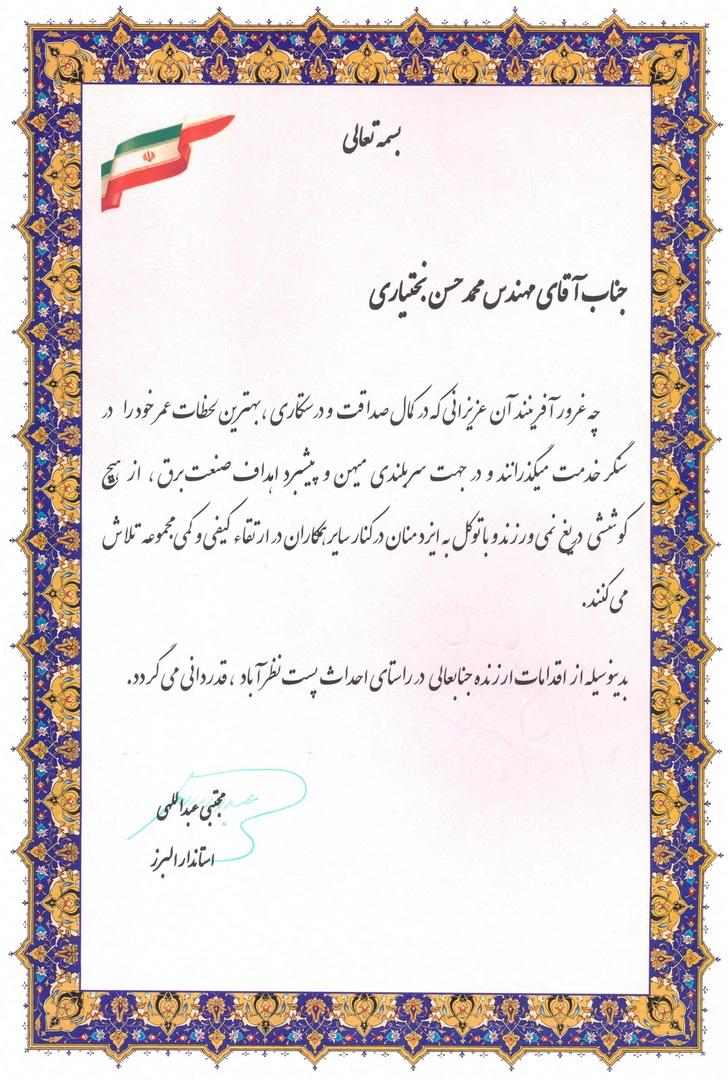 بسمه تعالی
جناب آقای مهندس محمد حسن بختیاری
چه غرور آفرینند آن عزیزانی که در کمال صداقت و درستکاری ، بهترین لحظات عمر خود را در
سنگر خدمت میگذرانند و در جهت سربلندی میهن و پیشبرد اهداف صنعت برق ، از هیچ
کوششی دریغ نمی ورزند و با توکل به ایزد منان در کنار سایر همکاران در ارتقاء کیفی و کمی مجموعه تلاش
می کنند.
بدینوسیله از اقدامات ارزنده جنابعالی در راستای احداث پست نظرآباد ، قدردانی می گردد.
مجتبی عبداللهی
استاندار البرز